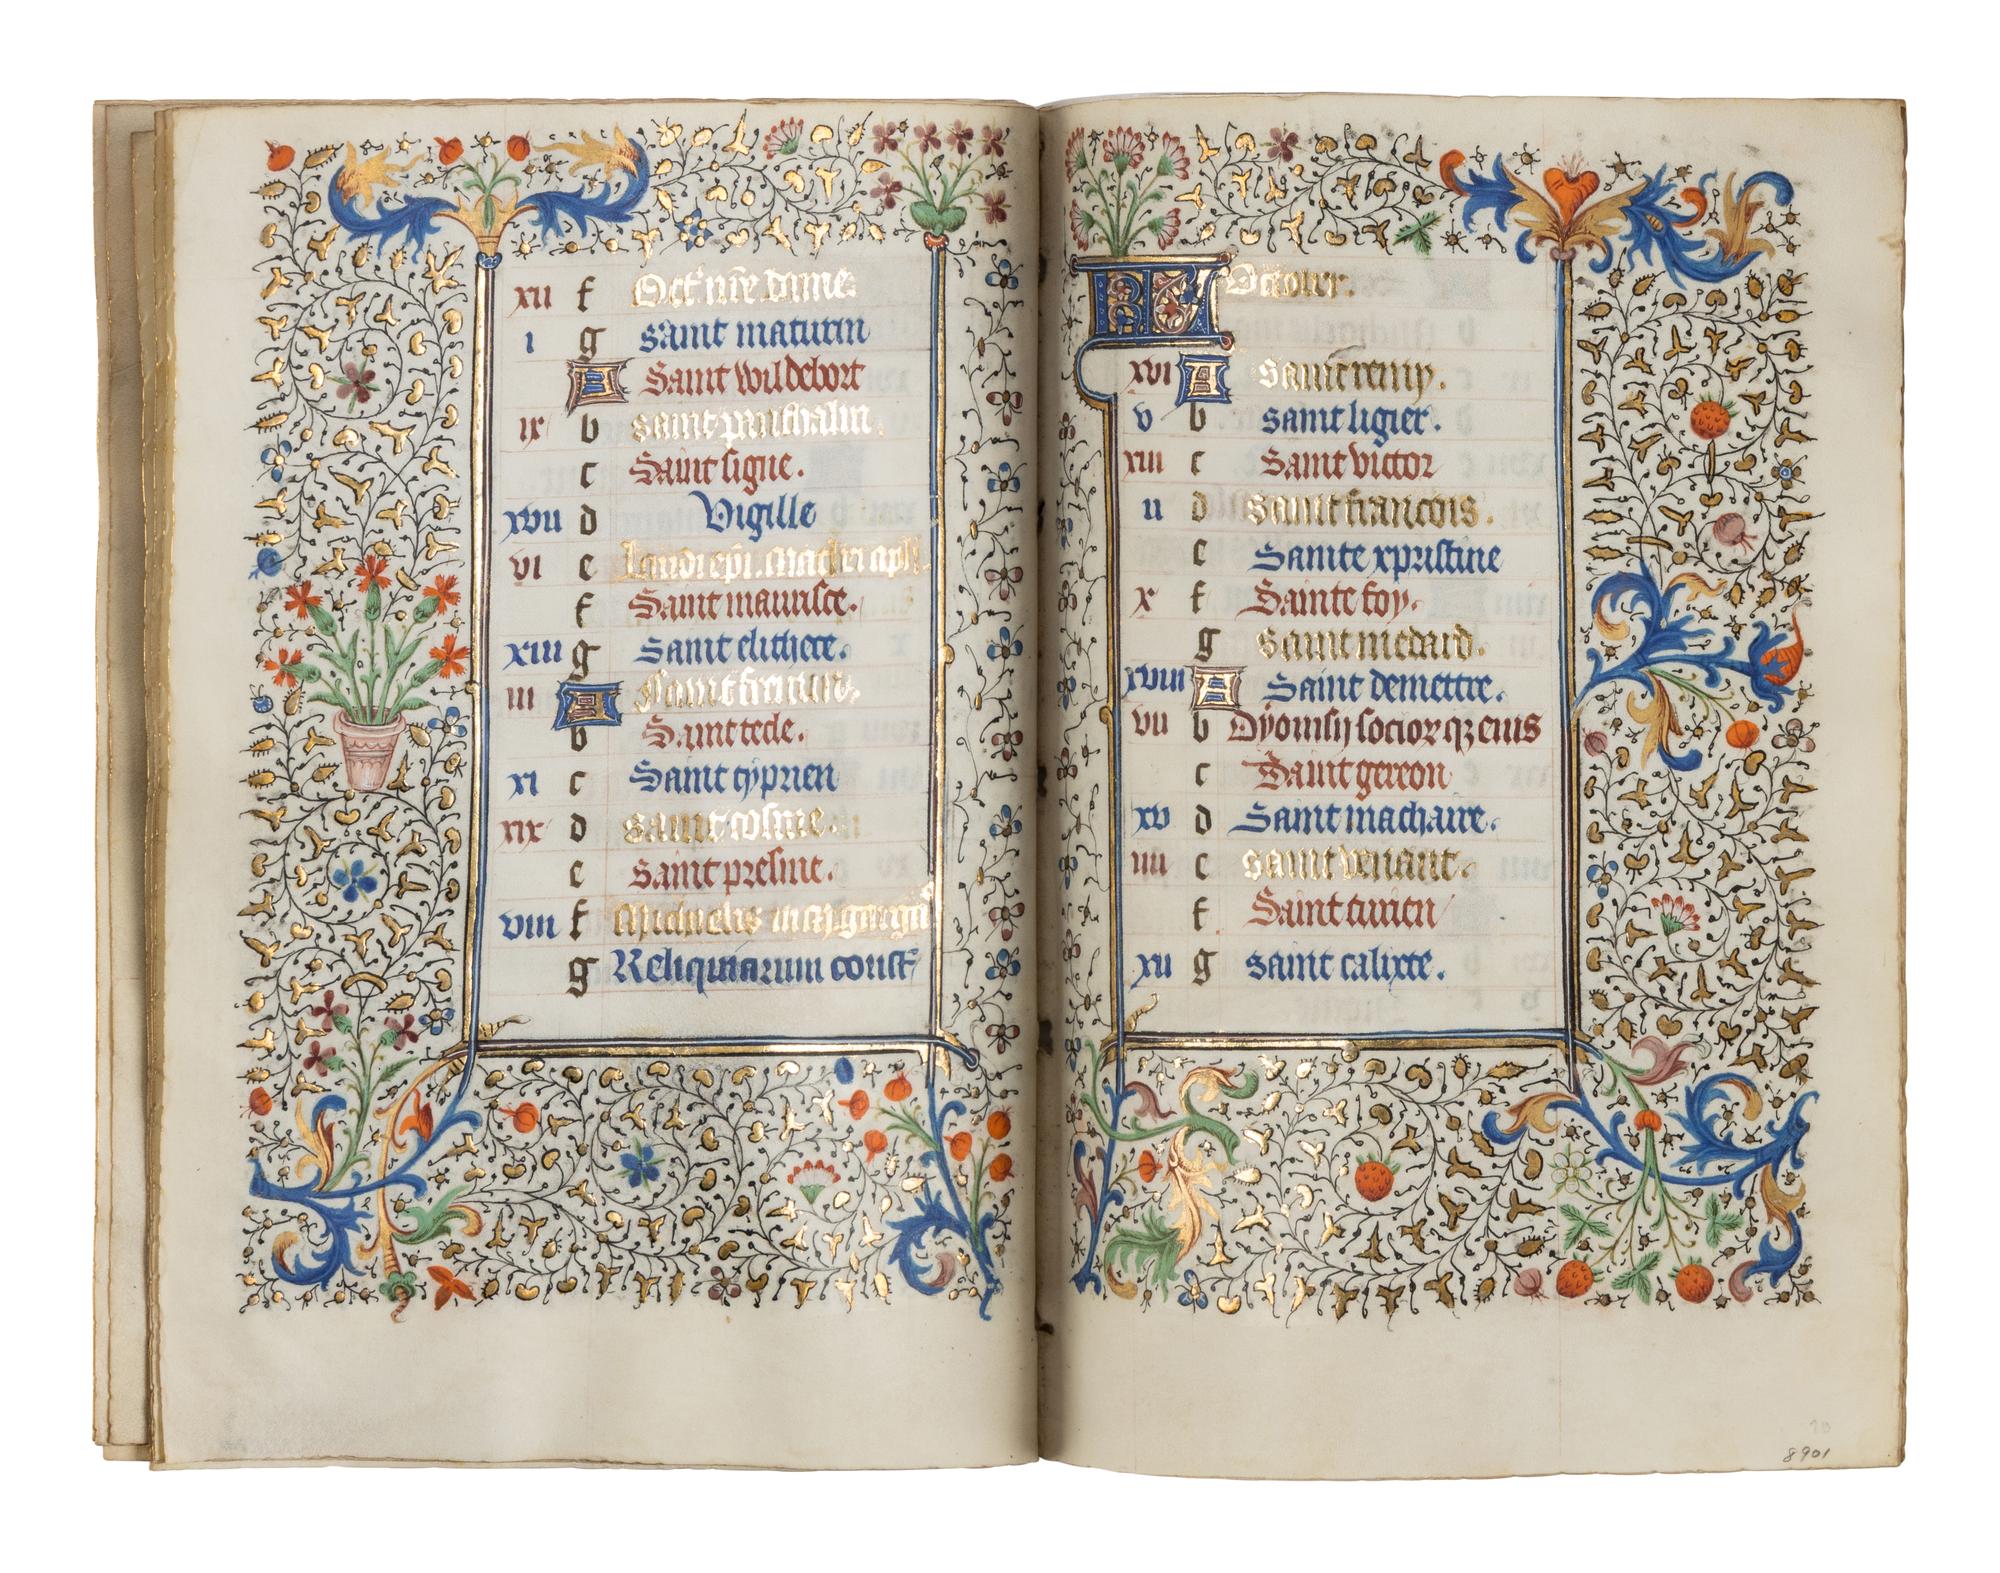 xii f Oct nr̄e dame.
i g saint maturin
A Saint wildebort
ix b saint panthalin.
c Saint signe.
xvii d Vigille
vi e ep̄i. mathei apl̄i.
f Saint maurisce.
xiii g Saint elithere.
iii A Saint firmin.
b Saint tecle.
xi c Saint cyprien
xix d saint cosme.
e Saint presme.
viii f Michaelis
g Reliquiarum
KL October.
xvi A Saint remy.
v b saint ligier.
xiii c Saint victor
ii d Saint francois.
e Sainte xpristine
x f Sainte foy.
g saint medard.
xviii A Saint demettre.
vii b Dyonisij sociorqz eius
c Saint gereon
xv d Saint machaire.
iiii e saint venant.
f Saint turien
xii g saint calixte.
10
8901